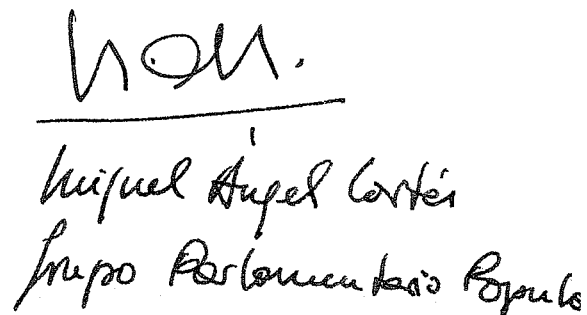 Miguel Ángel Cortés
Grupo Parlamentario Popula